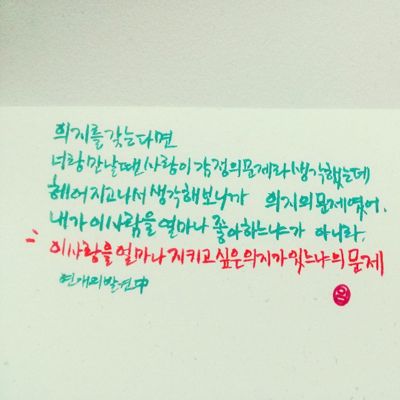 의지를 갖는다면
너랑 만날땐 사랑이 감정의 문제라 생각했는데
헤어지고나서 생각해보니까 의지의 문제였어.
내가 이사람을 얼마나 좋아하느냐가 아니라,
이사랑을 얼마나 지키고싶은 의지가 있느냐의 문제
연애의발견中